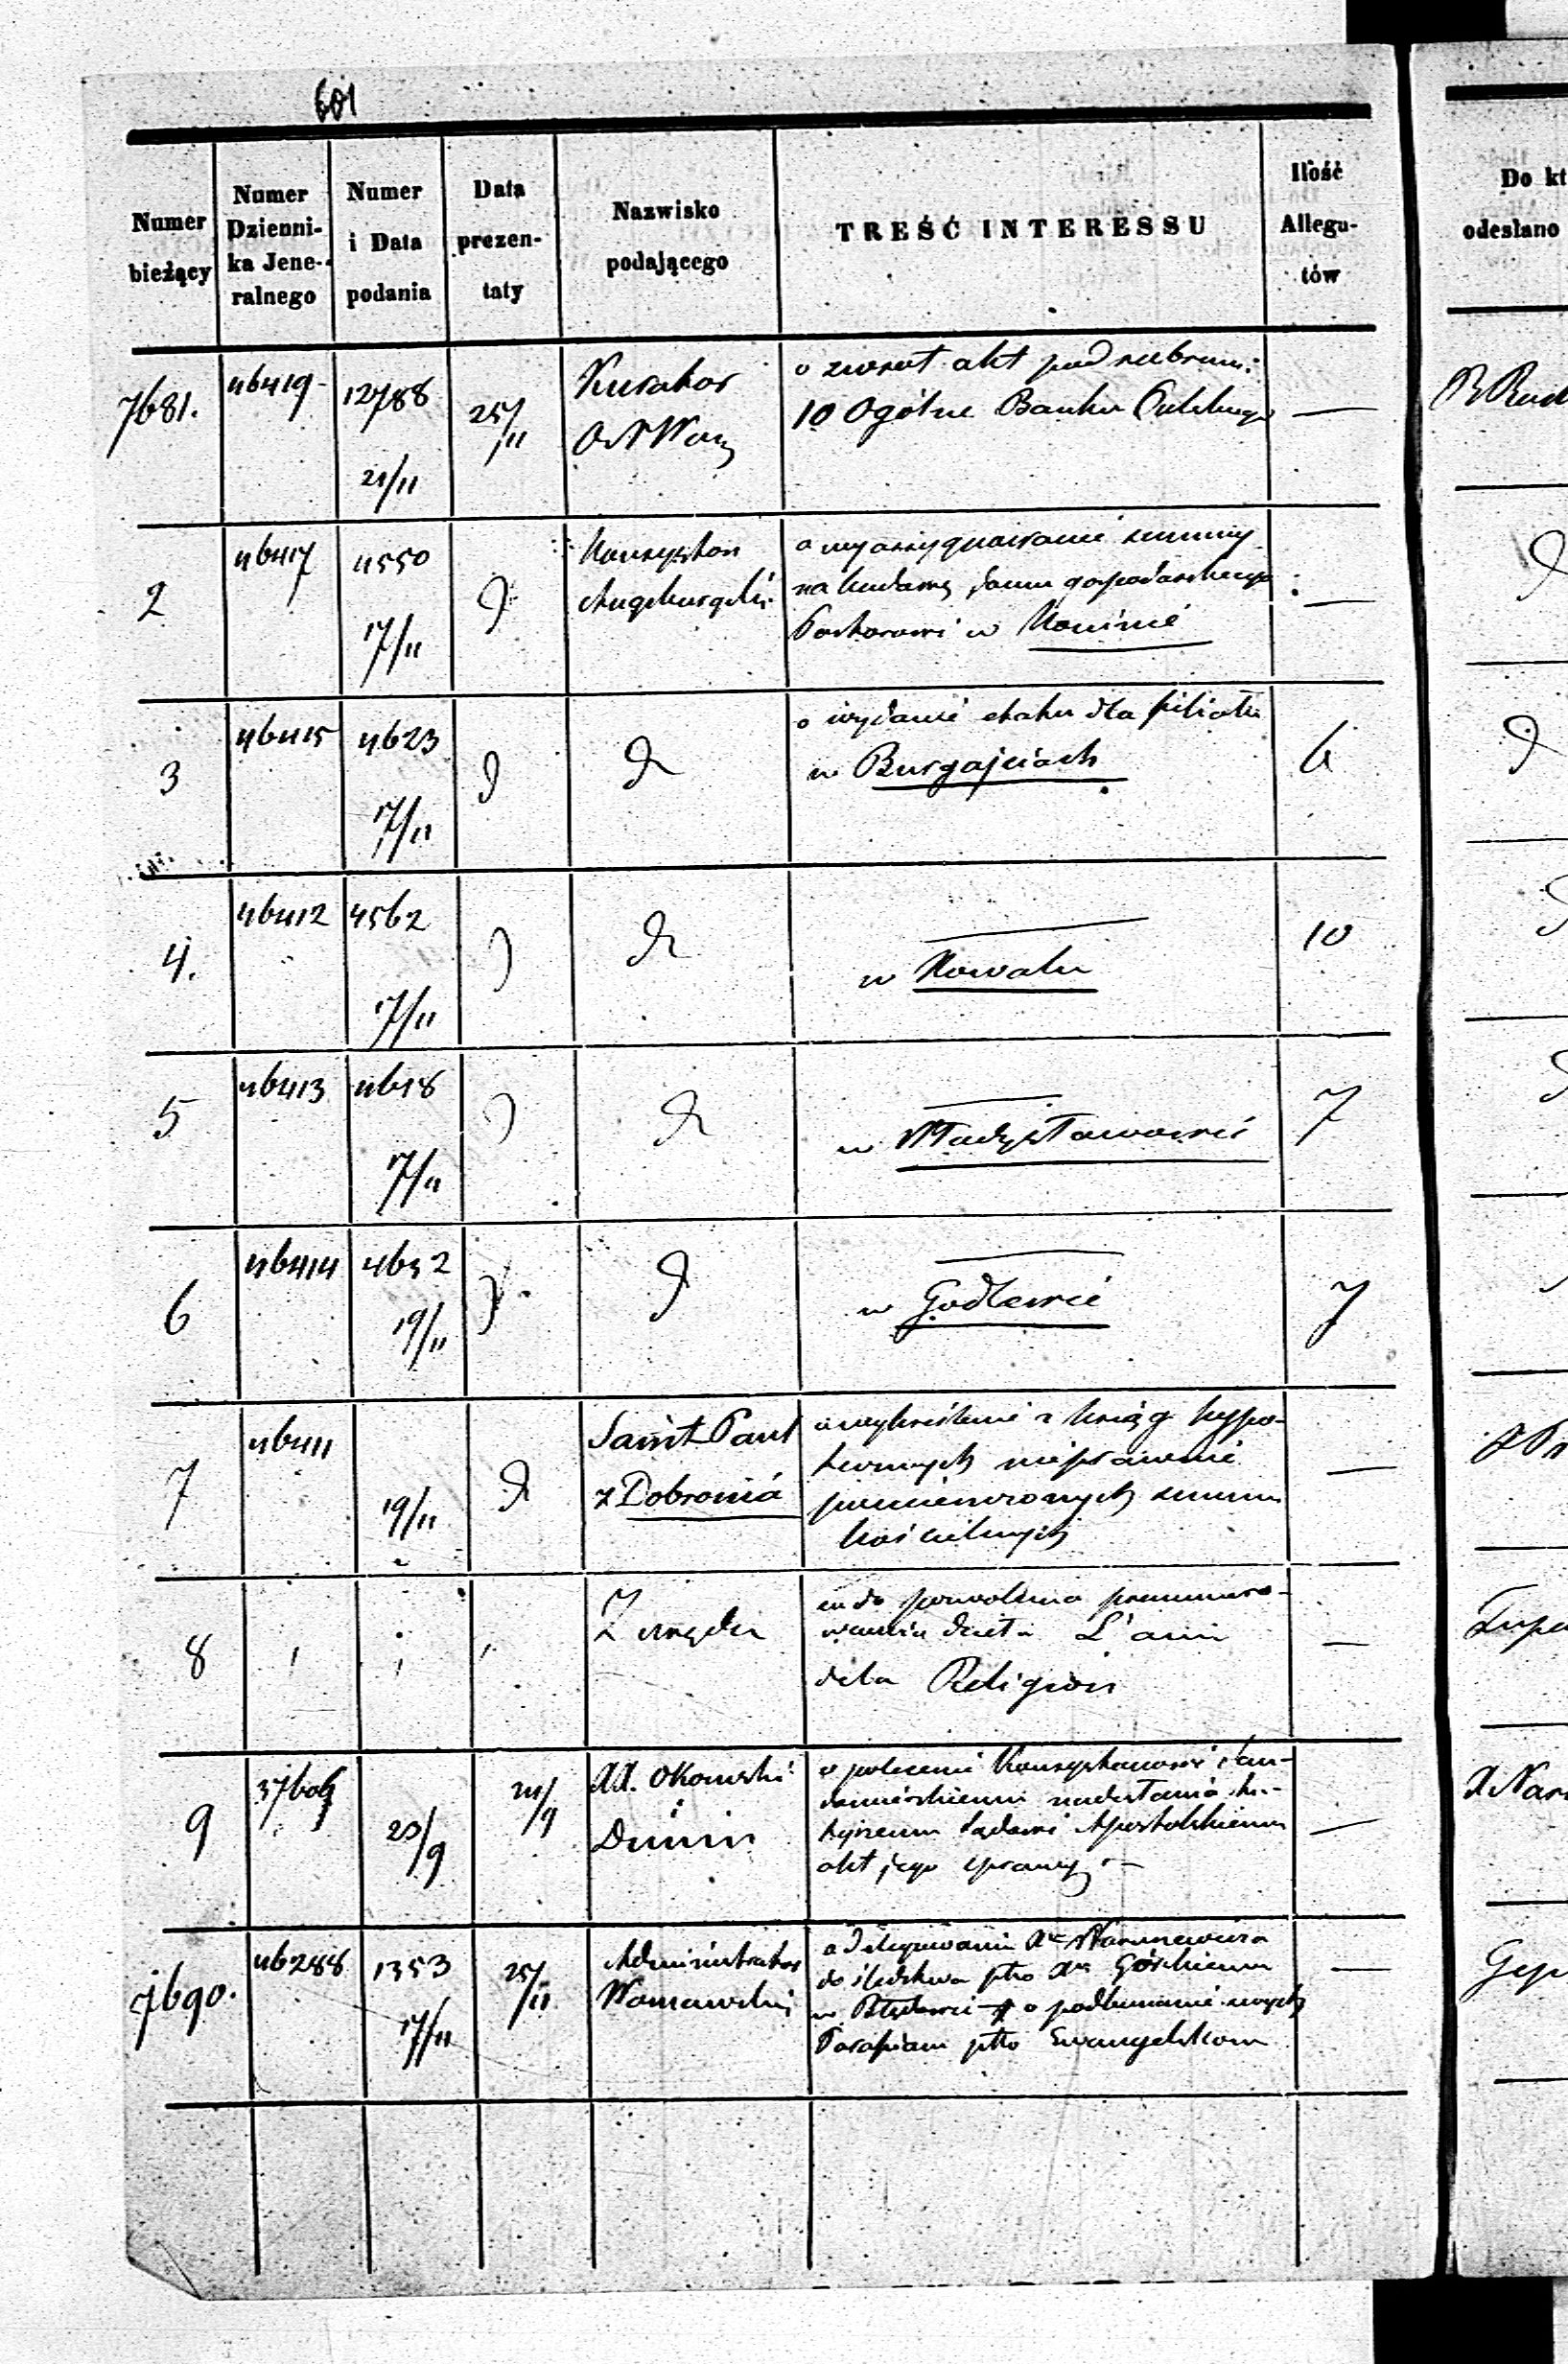 601
Numer bieżący
Numer Dzienni- ka Jene- ralnego
Numer i Data podania
Data prezen- taty
Nazwisko podającego
TREŚĆ INTERESSU
Ilość Allegu- tów
Do kt
odesłano
7681. 46419 12788 21/11 25/11
Kurator
O N Warsz
o zwrot akt pod rubrum:
10 Ogólne Banku
—
2 46417 4550 17/11 D
Konsystorz
Augsburgski
o wyassygnowanie summy
na budowę domu gospodarskiego
Pastorowi w Koninie
—
3 46415 4623 17/11 D
D
o wydanie etatu dla filiału
w Burgajciach
6
4. 46412 4562 17/11
D
w Kowalu
10
5 46413 4618 17/11
D
w Władysławowie
7
6 46414 4632 19/11
D
w Godlewie
7
7 46411 19/11 D
Saint Paul
z Dobronia
o wykreślenie z ksiąg hypo-
tecznych nieprawnie
summ
kościelnych
—
8
Z urzędu
co do pozwolenia prenumero-
wania dzieła L'ami
de la Religion
—
9 37609 23/9 24/9
XX. Okoński
i
Dunin
o polecenie Konsystorzowi San-
domierskiemu nadesłania tu-
tejszemu Sądowi Apostolskiemu
akt jego sprawy —
—
7690. 46288 1353 17/11 25/11
Administrator
Warszawski
o delegowanie Xa
do śledztwa pko Xu Górskiemu
w o podburzanie swych
Parafian pko Ewangelikom
—